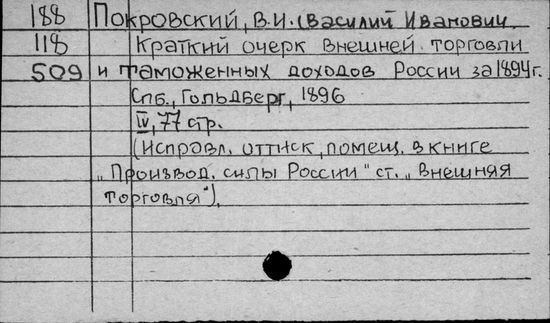 188 Покровский, В.И. (Василий Иванович
118 Краткий очерк внешней торговли
509 и таможенных доходов России за 1894г.
Спб., Гольдберг, 1896
IV, 77 стр.
(Исправл. оттиск, помещ. в книге
„Производ. силы России" ст. „Внешняя
торговля").